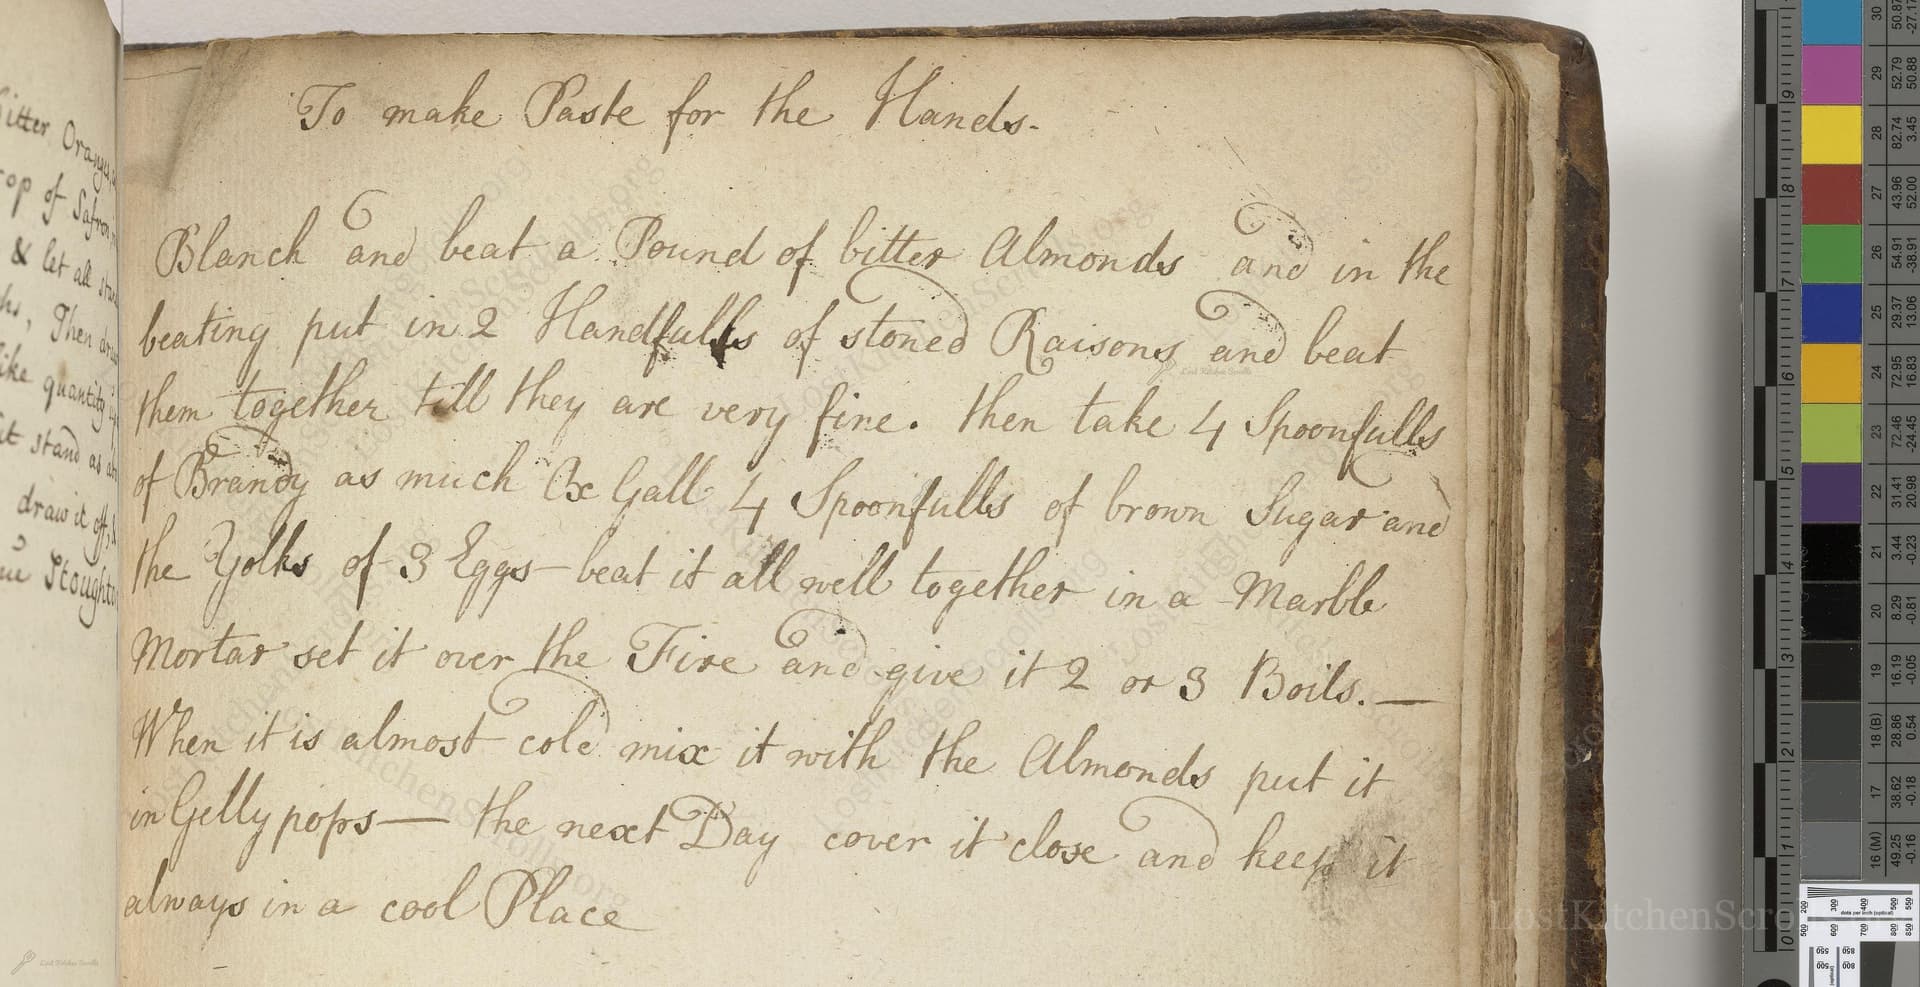 To make Paste for the Hands.
Blanch and beat a Pound of bitter Almonds and in the
beating put in 2 Handfulls of stoned Raisons and beat
them together till they are very fine. then take 4 Spoonfulls
of Brandy as much Ox Gall 4 Spoonfulls of brown Sugar and
the Yolks of 3 Eggs – beat it all well together in a Marble
Mortar set it over the Fire and give it 2 or 3 Boils. —
When it is almost cold mix it with the Almonds put it
in Gelly pops — the next Day cover it close and keep it
always in a cool Place
itter Oranges
op of Safron
& let all
Then
ike quantity
it stand as
draw it off,
Stought
LostKitchenScrolls.org
Lost Kitchen Scrolls
30 50.87 -27.17
29 52.79 50.88
28 82.74 3.45
27 43.96 52.00
26 54.91 -38.91
25 29.37 13.06
24 72.95 16.83
23 72.46 -24.45
22 31.41 20.98
21 3.44 -0.23
20 8.29 -0.81
19 16.19 -0.05
18 (B) 28.86 0.54
17 38.62 -0.18
16 (M) 49.25 -0.16
9
8
7
6
5
4
3
2
1
0